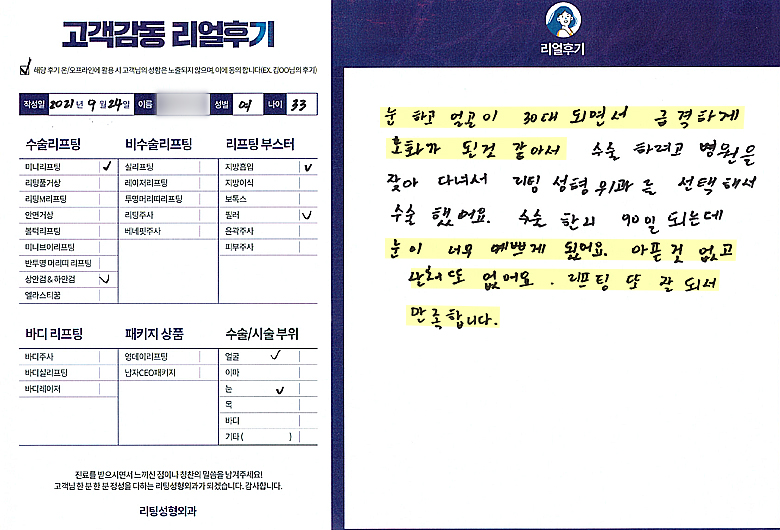 고객감동 리얼후기
해당 후기 온/오프라인에 활용 시 고객님의 성함은 노출되지 않으며, 이에 동의 합니다(EX. 김OO님의 후기)
작성일 2021년 9월 24일 이름 성별 여 나이 33
수술리프팅 비수술리프팅 리프팅 부스터
미니리프팅 ✓ 실리프팅 지방흡입 ✓
리팅풀거상 레이저리프팅 지방이식
리팅M리프팅 투명머리띠리프팅 보톡스
안면거상 리팅주사 필러 ✓
볼턱리프팅 베네핏주사 윤곽주사
미니브이리프팅 피부주사
반투명 머리띠 리프팅
상안검 & 하안검 ✓
엘라스티꿈
바디 리프팅 패키지 상품 수술/시술 부위
바디주사 원데이리프팅 얼굴 ✓
바디실리프팅 남자CEO패키지 이마
바디레이저 눈 ✓
목
바디
기타 ( )
진료를 받으시면서 느끼신 점이나 칭찬의 말씀을 남겨주세요!
고객님 한 분 한 분 정성을 다하는 리팅성형외과가 되겠습니다. 감사합니다.
리팅성형외과
리얼후기
눈 하고 얼굴이 30대 되면서 급격하게
노화가 된것 같아서 수술 하려고 병원을
찾아 다녀서 리팅 성형외과를 선택해서
수술 했어요. 수술 한지 90일 되는데
눈이 너무 예쁘게 됬어요. 아픈것 없고
상처도 없어요. 리프팅 또 잘 되서
만족합니다.